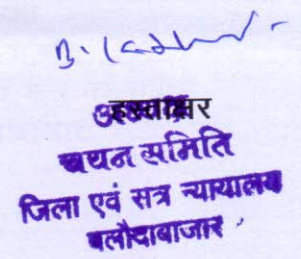 हस्ताक्षर
अध्यक्ष
चयन समिति
जिला एवं सत्र न्यायालय
बलौदाबाजार